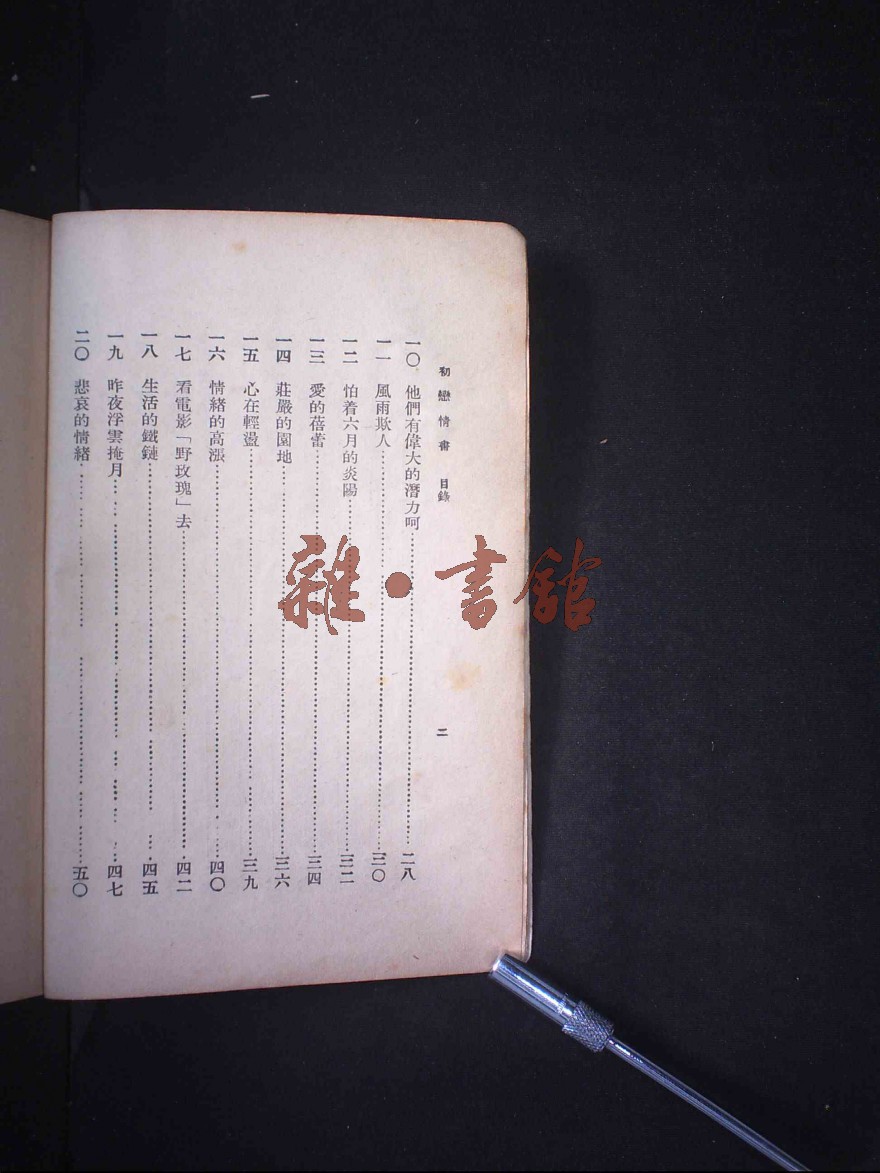 初戀情書 目錄 二
一〇 他們有偉大的潛力呵 二八
一一 風雨欺人 三〇
一二 怕着六月的炎陽 三二
一三 愛的蓓蕾 三四
一四 莊嚴的園地 三六
一五 心在輕盪 三九
一六 情緒的高漲 四〇
一七 看電影「野玫瑰」去 四二
一八 生活的鐵鏈 四五
一九 昨夜浮雲掩月 四七
二〇 悲哀的情緒 五〇
雜·書館